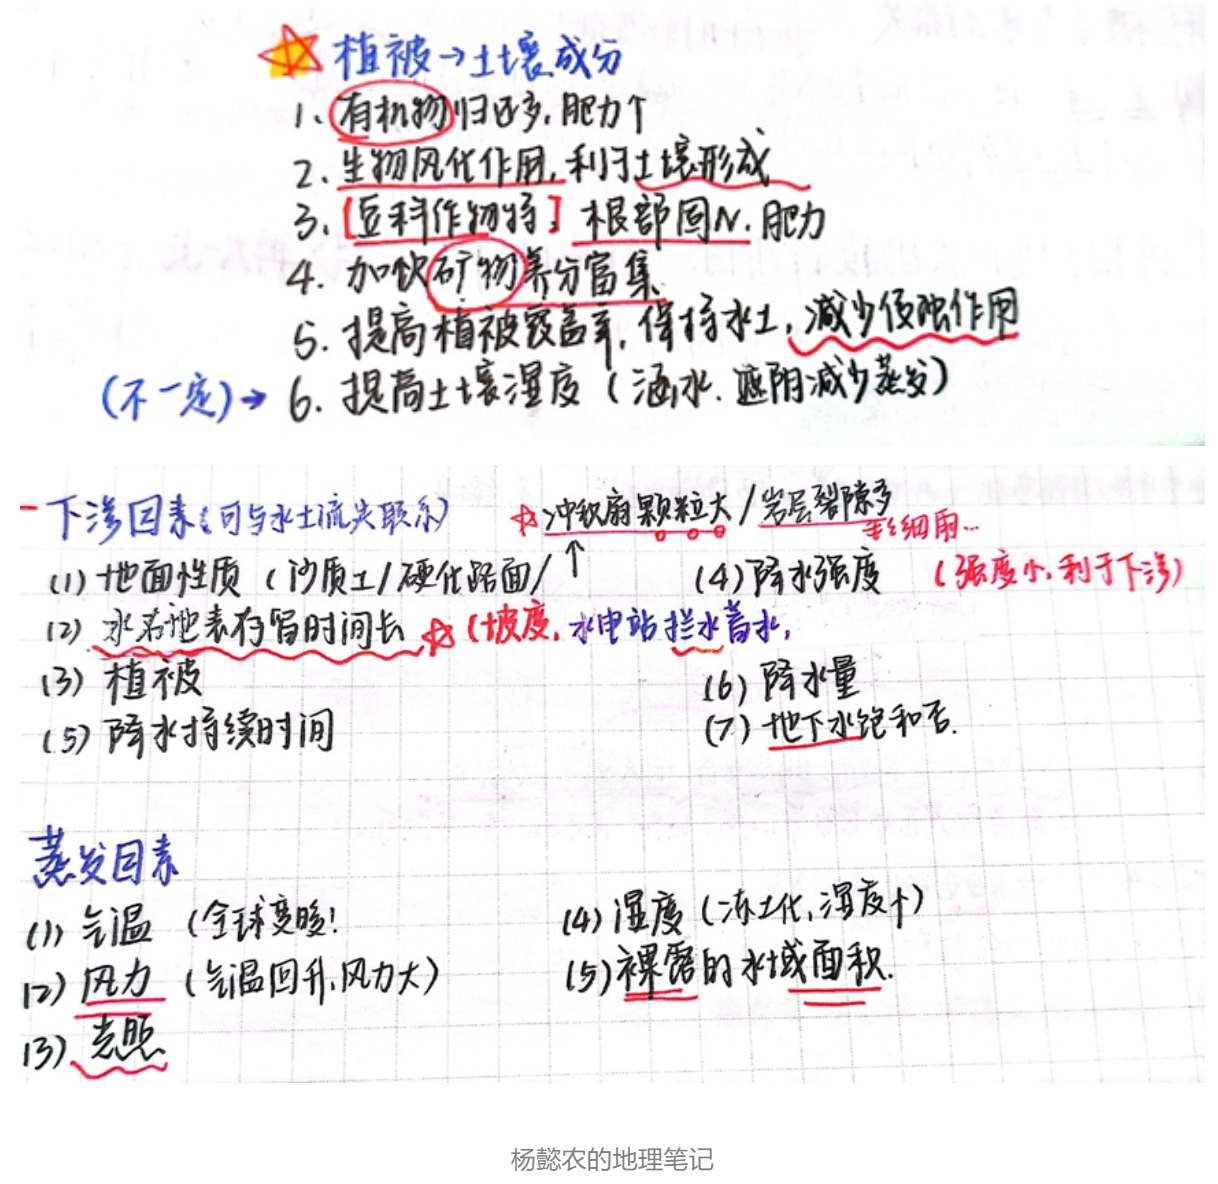 植被→土壤成分
1. 有机物归还多,肥力↑
2. 生物风化作用,利于土壤形成
3. [豆科作物特] 根部固N.肥力
4. 加快矿物养分富集
5. 提高植被覆盖率,保持水土,减少侵蚀作用
(不一定)→ 6. 提高土壤湿度(涵水.遮阴减少蒸发)
下渗因素(可与水土流失联系)
☆冲积扇颗粒大/岩层裂隙多
(1)地面性质(沙质土/硬化路面/↑
(4)降水强度 (强度小,利于下渗)
(2)水在地表存留时间长☆(坡度,水电站拦水蓄水,
(3)植被
(6)降水量
(5)降水持续时间
(7)地下水饱和否.
蒸发因素
(1)气温(全球变暖!
(4)湿度(冻土化,湿度↑)
(2)风力(气温回升,风力大)
(5)裸露的水域面积.
(3)光照
杨懿农的地理笔记